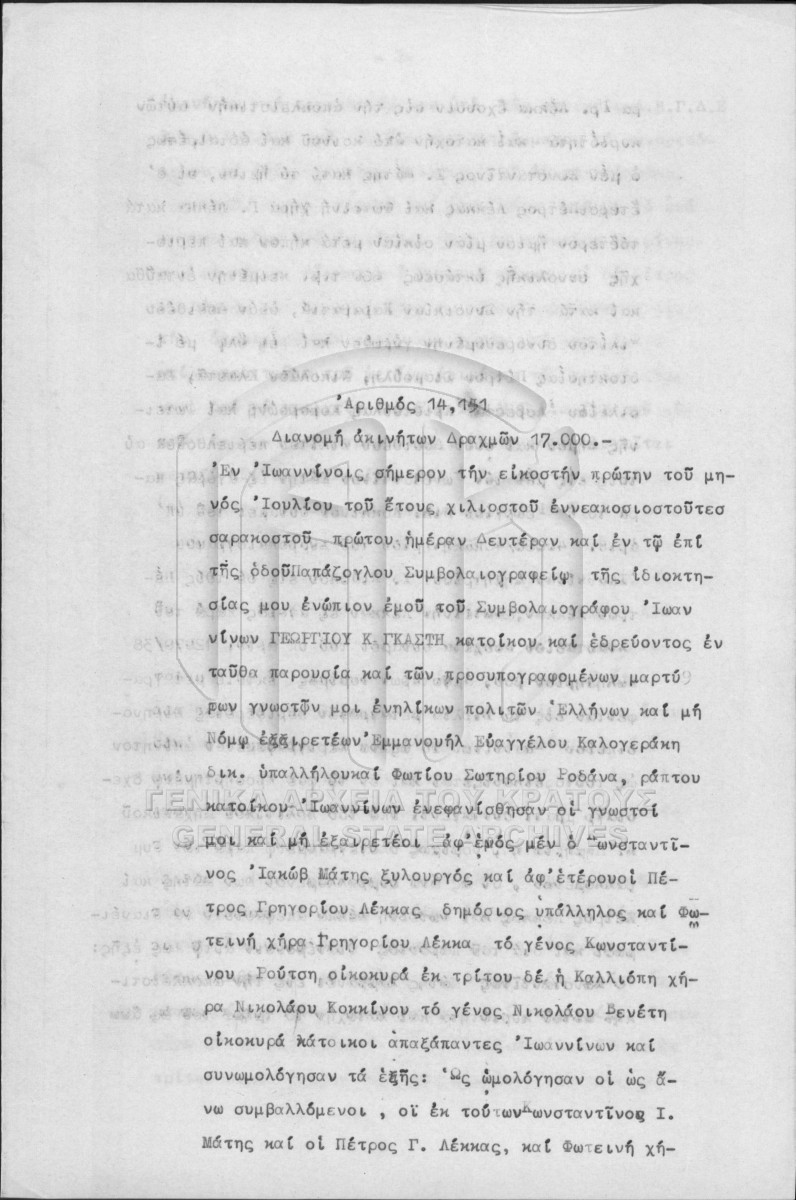 Ἀριθμός 14,151
Διανομή ἀκινήτων Δραχμῶν 17.000.-
Ἐν Ἰωαννίνοις σήμερον τήν εἰκοστήν πρώτην τοῦ μη-
νός Ἰουλίου τοῦ ἔτους χιλιοστοῦ ἐννεακοσιοστοῦτεσ
σαρακοστοῦ πρώτου ἡμέραν Δευτέραν καί ἐν τῷ ἐπί
τῆς ὁδοῦΠαπάζογλου Συμβολαιογραφείῳ τῆς ἰδιοκτη-
σίας μου ἐνώπιον ἐμοῦ τοῦ Συμβολαιογράφου Ἰωαν
νίνων ΓΕΩΡΓΙΟΥ Κ. ΓΚΑΣΤΗ κατοίκου καί ἑδρεύοντος ἐν
ταῦθα παρουσία καί τῶν προσυπογραφομένων μαρτύ
ρων γνωστῶν μοι ἐνηλίκων πολιτῶν Ἑλλήνων καί μή
Νόμῳ ἐξαιρετέων Ἐμμανουήλ Εὐαγγέλου Καλογεράκη
δικ. ὑπαλλήλουκαί Φωτίου Σωτηρίου Ροδάνα, ράπτου
κατοίκου Ἰωαννίνων ἐνεφανίσθησαν οἱ γνωστοί
μοι καί μή ἐξαιρετέοι ἀφ' ἑνός μέν ὁ Κωνσταντῖ-
νος Ἰακώβ Μάτης ξυλουργός καί ἀφ'ἑτέρουοἱ Πέ-
τρος Γρηγορίου Λέκκας δημόσιος ὑπάλληλος καί Φω-
τεινή χήρα Γρηγορίου Λέκκα τό γένος Κωνσταντί-
νου Ρούτση οἰκοκυρά ἐκ τρίτου δέ ἡ Καλλιόπη χή-
ρα Νικολάου Κοκκίνου τό γένος Νικολάου Βενέτη
οἰκοκυρά κάτοικοι ἁπαξάπαντες Ἰωαννίνων καί
συνωμολόγησαν τά ἑξῆς: Ὡς ὡμολόγησαν οἱ ὡς ἄ-
νω συμβαλλόμενοι , οἵ ἐκ τούτωνΚωνσταντῖνος Ι.
Μάτης καί οἱ Πέτρος Γ. Λέκκας, καί Φωτεινή χή-
ΓΕΝΙΚΑ ΑΡΧΕΙΑ ΤΟΥ ΚΡΑΤΟΥΣ
GENERAL STATE ARCHIVES